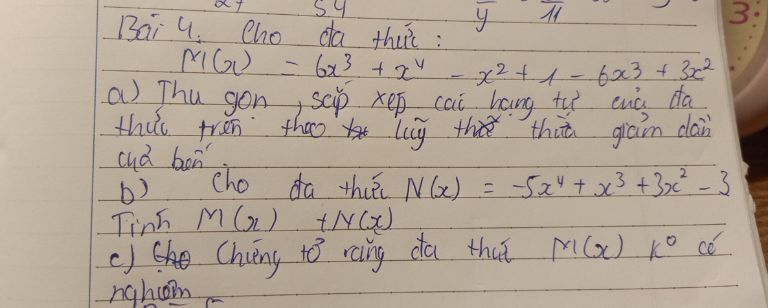 54 y 11
3:
Bài 4. Cho đa thức :
M(x) = 6x³ + x⁴ - x² + 1 - 6x³ + 3x²
a) Thu gọn, sắp xếp các hạng tử của đa
thức trên theo luỹ thừa giảm dần
của biến.
b) Cho đa thức N(x) = -5x⁴ + x³ + 3x² - 3
Tính M(x) + N(x)
c) Chứng tỏ rằng đa thức M(x) k° có
nghiệm